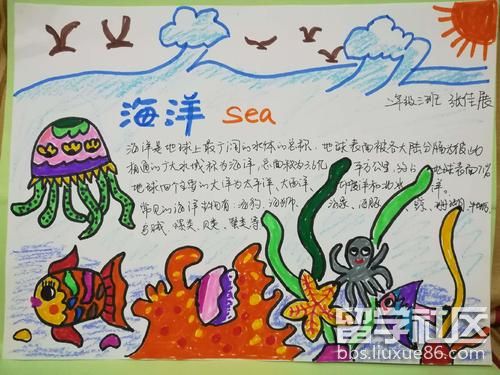 海洋 sea
年级三班 张佳展
海洋是地球上最广阔的水体的总称，地球表面被各大陆分隔为彼此
相通的广大水域称为海洋，总面积约为3.6亿平方公里，约占地球表面71%
地球四个主要的大洋为太平洋、大西洋、印度洋和北冰洋。
常见的海洋动物有：海豹、海狮、海象、海豚、鲸、珊瑚
乌贼、虾类、贝类、蟹类等
留学社区
bbs.liuxue86.com